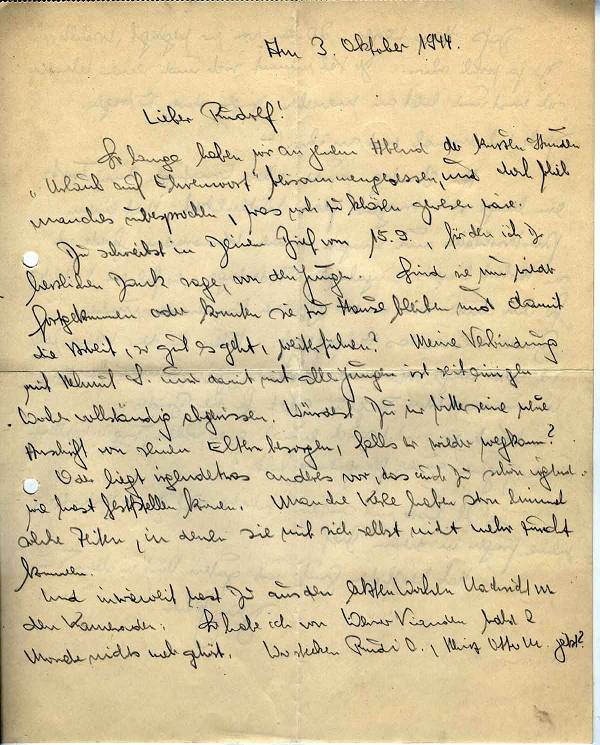 Am 3. Oktober 1944.
Lieber Rudolf!
So lange haben wir an jenem Abend der kurzen Stunden
„Urlaub auf Ehrenwort“ beisammengesessen, und doch blieb
manches unbesprochen, was noch zu klären gewesen wäre.
Du schreibst in Deinem Brief vom 15.9., für den ich Dir
herzlichen Dank sage, von den Jungen. Sind sie nun wieder
fortgekommen oder konnten sie zu Hause bleiben und damit
die Arbeit, so gut es geht, weiterführen? Meine Verbindung
mit Helmut S. und damit mit allen Jungen ist seit einigen
Wochen vollständig abgerissen. Würdest Du mir bitte seine neue
Anschrift von seinen Eltern besorgen, falls er wieder wegkam?
Oder liegt irgendetwas anderes vor, das auch Du schon
hast feststellen können. Manche Kerle haben schon einmal
solche Zeiten, in denen sie mit sich selbst nicht mehr zurecht
kommen.
Und inwieweit hast Du aus den letzten Wochen Nachricht von
den Kameraden. So habe ich von Werner Vianden bald 2
Monate nichts mehr gehört. Wo stecken Rudi O., Otto M. jetzt?